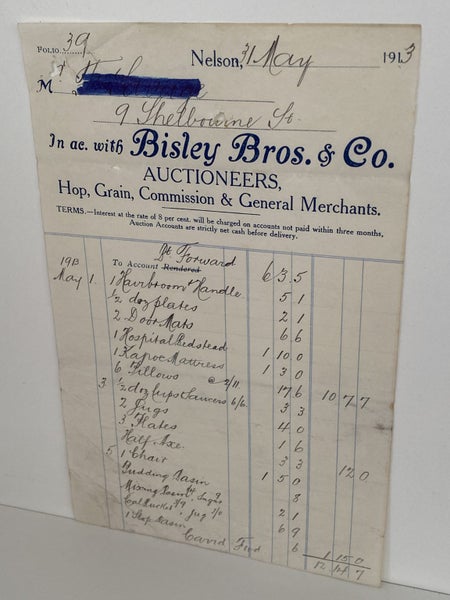 FOLIO 39
Nelson, 31 May 1913
Mr
9 Shelbourne St.
In ac. with Bisley Bros. & Co.
AUCTIONEERS,
Hop, Grain, Commission & General Merchants.
TERMS.—Interest at the rate of 8 per cent. will be charged on accounts not paid within three months.
Auction Accounts are strictly net cash before delivery.
Dr Forward
1913 To Account Rendered 6 3. 5
May 1. 1 Hairbroom & Handle 5 1
½ doz plates 2 1
2 Door Mats 6 6
1 Hospital Bedstead 1 10 0
1 Kapoc Mattress 1 3 0
6 Pillows @ 2/11 17 6 10 7 7
3 ½ doz Cups & Saucers 6/6 3 3
2 Jugs 4 0
3 Plates 1 6
Half Axe 3 3 12 0
5 1 Chair 1 5 0
Pudding Basin 8
Mixing Basin 2 1
Jug 6 9
1 Slop Basin 6 1 15 0
Carrd Fwd 12 14 7